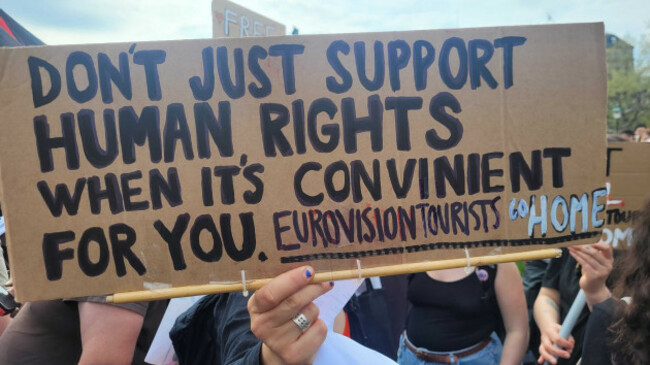 FREE
DON'T JUST SUPPORT
HUMAN RIGHTS
WHEN IT'S CONVINIENT
FOR YOU. EUROVISIONTOURISTS GO HOME